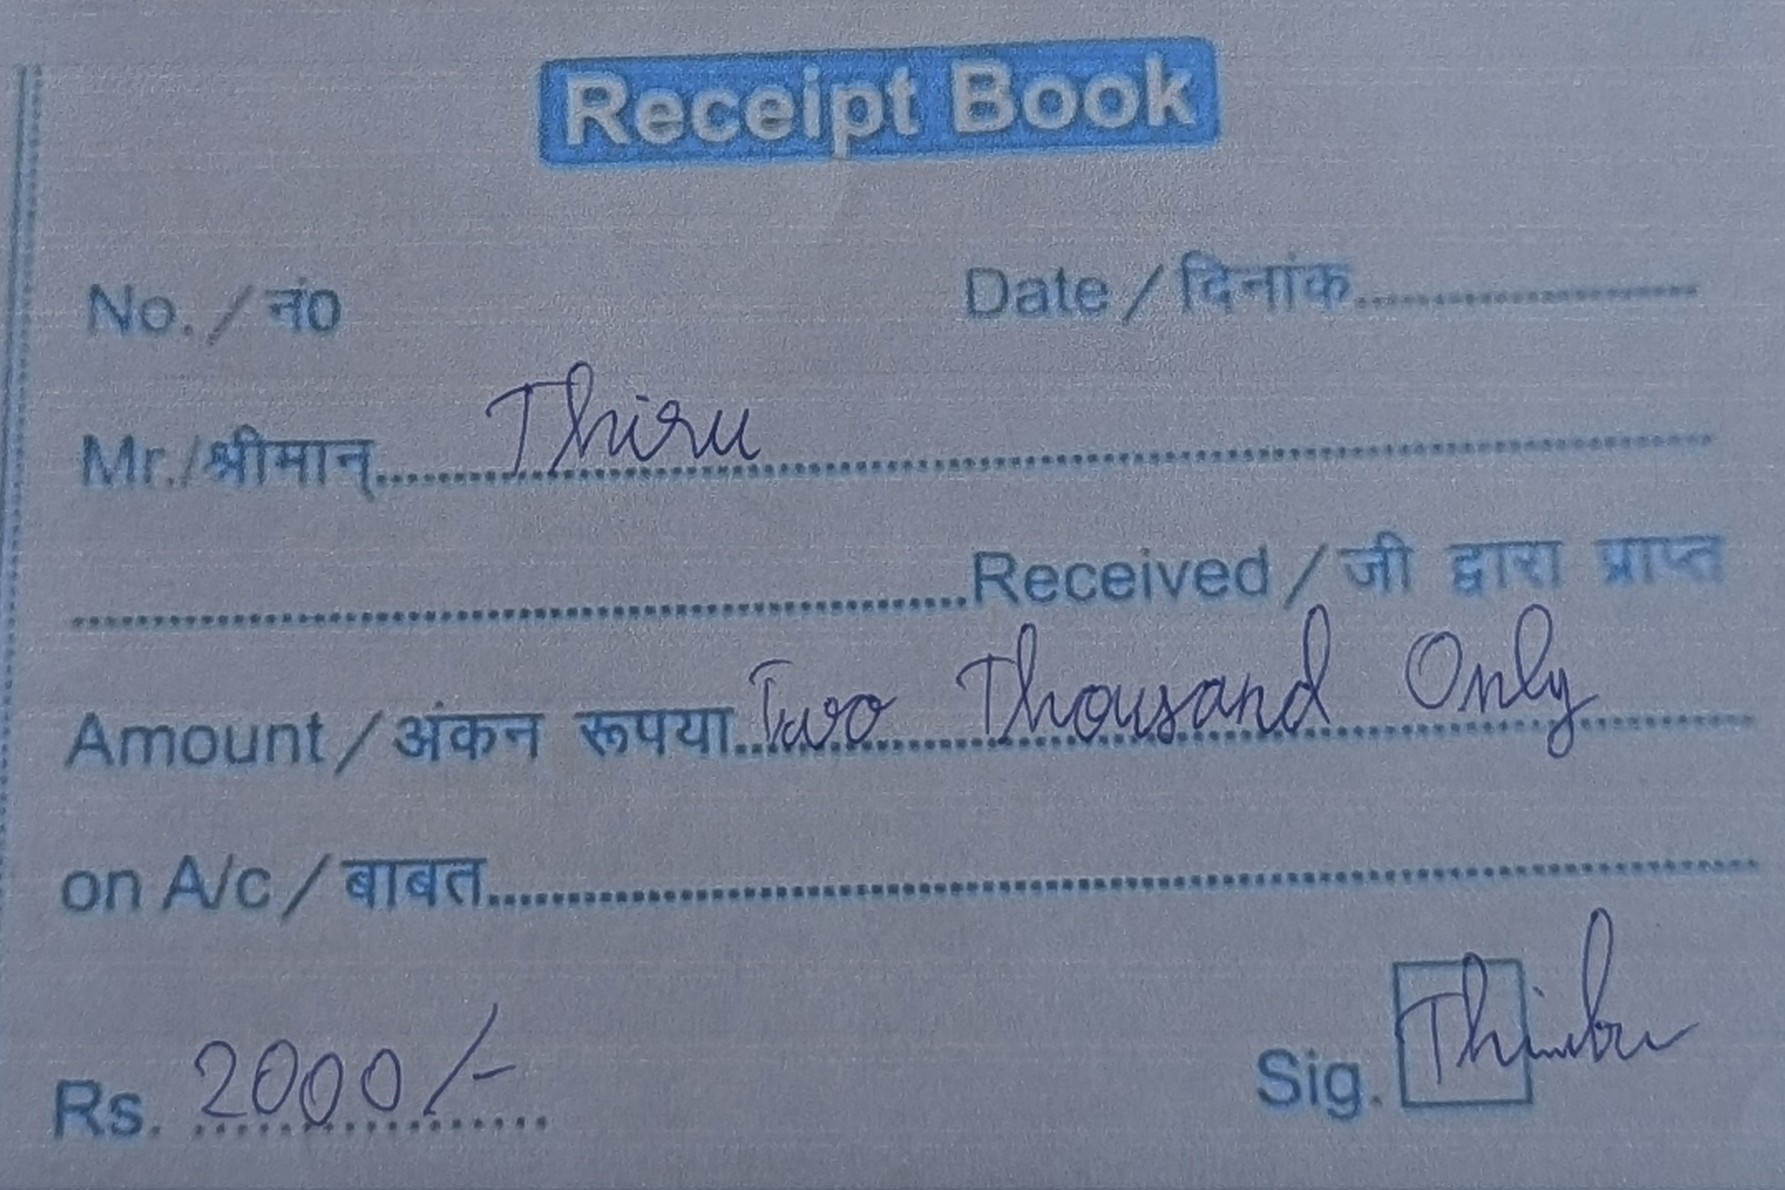 Receipt Book
No. / नं0 Date / दिनांक....................
Mr./श्रीमान्.....Thiru..............................
..............................Received / जी द्वारा प्राप्त
Amount / अंकन रूपया..Two Thousand Only........
on A/c / बाबत........................................
Rs. 2000/- Sig.